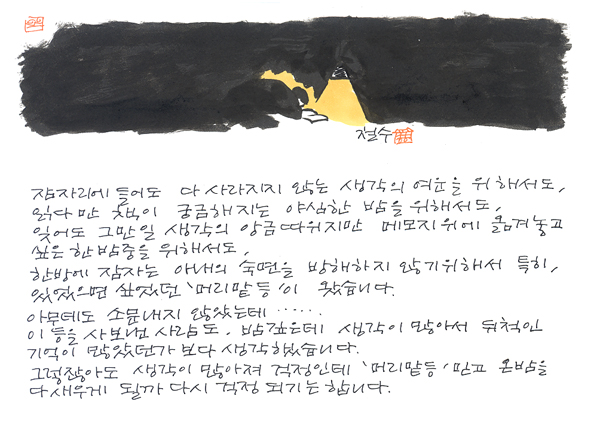 철수
잠자리에 들어도 다 사라지지 않는 생각의 여운을 위해서도,
읽다 만 책이 궁금해지는 야심한 밤을 위해서도,
잊어도 그만일 생각의 앙금따위지만 메모지위에 옮겨놓고
싶은 한밤중을 위해서도,
한방에 잠자는 아내의 숙면을 방해하지 않기위해서 특히,
있었으면 싶었던 '머리맡등'이 왔습니다.
아무데도 소문내지 않았는데……
이 등을 사보낸 사람도, 밤깊은데 생각이 많아서 뒤척인
기억이 많았던가 보다 생각했습니다.
그렇잖아도 생각이 많아져 걱정인데 '머리맡등' 믿고 온밤을
다새우게 될까 다시 걱정 되기는 합니다.